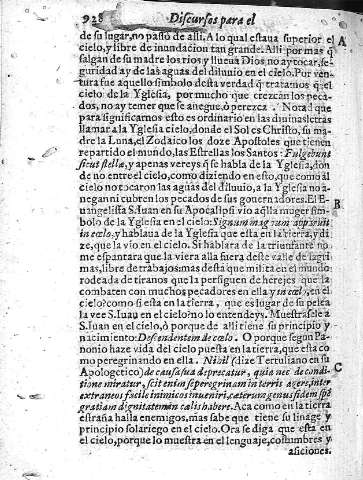 928 Discursos para el
de su lugar, no passò de alli. A lo qual estaua superior el
cielo, y libre de inundacion tan grande. Alli por mas q̃
salgan de su madre los rios y llueua Dios no ay tocar, se-
guridad ay de las aguas del diluuio en el cielo. Por ven-
tura fue aquello simbolo desta verdad q̃ tratamos q̃ el
cielo de la Yglesia, por mucho que crezcan los peca-
dos, no ay temer que se anegue, ò perezca. Notad que
para significarnos esto es ordinario en las diuinas letras
llamar a la Yglesia cielo, donde el Sol es Christo, su ma-
dre la Luna, el Zodaico los doze Apostoles que tienen
repartido el mundo, las Estrellas los Santos: Fulgebunt
sicut stellæ, y apenas vereys q̃ se habla de la Yglesia, don
de no entre el cielo, como diziendo en esto, que como al
cielo no tocaron las aguas del diluuio, a la Yglesia no a-
negan ni cubren los pecados de sus gouernadores. El E-
uangelista S. Iuan en su Apocalipsi vio aq̃lla muger sim-
bolo de la Yglesia en el cielo: Signum magnum apparuit
in cœlo, y hablaua de la Yglesia que esta en la tierra, y di
ze, que la vio en el cielo. Si hablara de la triunfante no
me espantara que la viera alla fuera deste valle de lagri
mas, libre de trabajos: mas desta que milita en el mundo
rodeada de tiranos que la persiguen de hereges que la
combaten con muchos pecadores en ella y in cœlo, en el
cielo? como si esta en la tierra, que es lugar de su pelea
la vee S. Iuan en el cielo? no lo entendeys. Muestrasele a
S. Iuan en el cielo, ò porque de alli tiene su principio y
nacimiento: Descendentem de cœlo. O porque segun Pa-
nonio haze vida del cielo puesta en la tierra, que esta co
mo peregrinando en ella. Nihil (dize Tertuliano en su
Apologetico) de causa sua deprecatur, quia nec de condi-
tione miratur, scit enim se peregrinam in terris agere, inter
extraneos facile inimicos inueniri, cæterum genus sedem spẽ
gratiam dignitatem in cœlis habere. Aca como en la tierra
estraña halla enemigos, mas sabe que tiene su linage y
principio solariego en el cielo. Ora se diga que està en
el cielo, porque lo muestra en el lenguaje, costumbres y
aficiones.
A
B
C